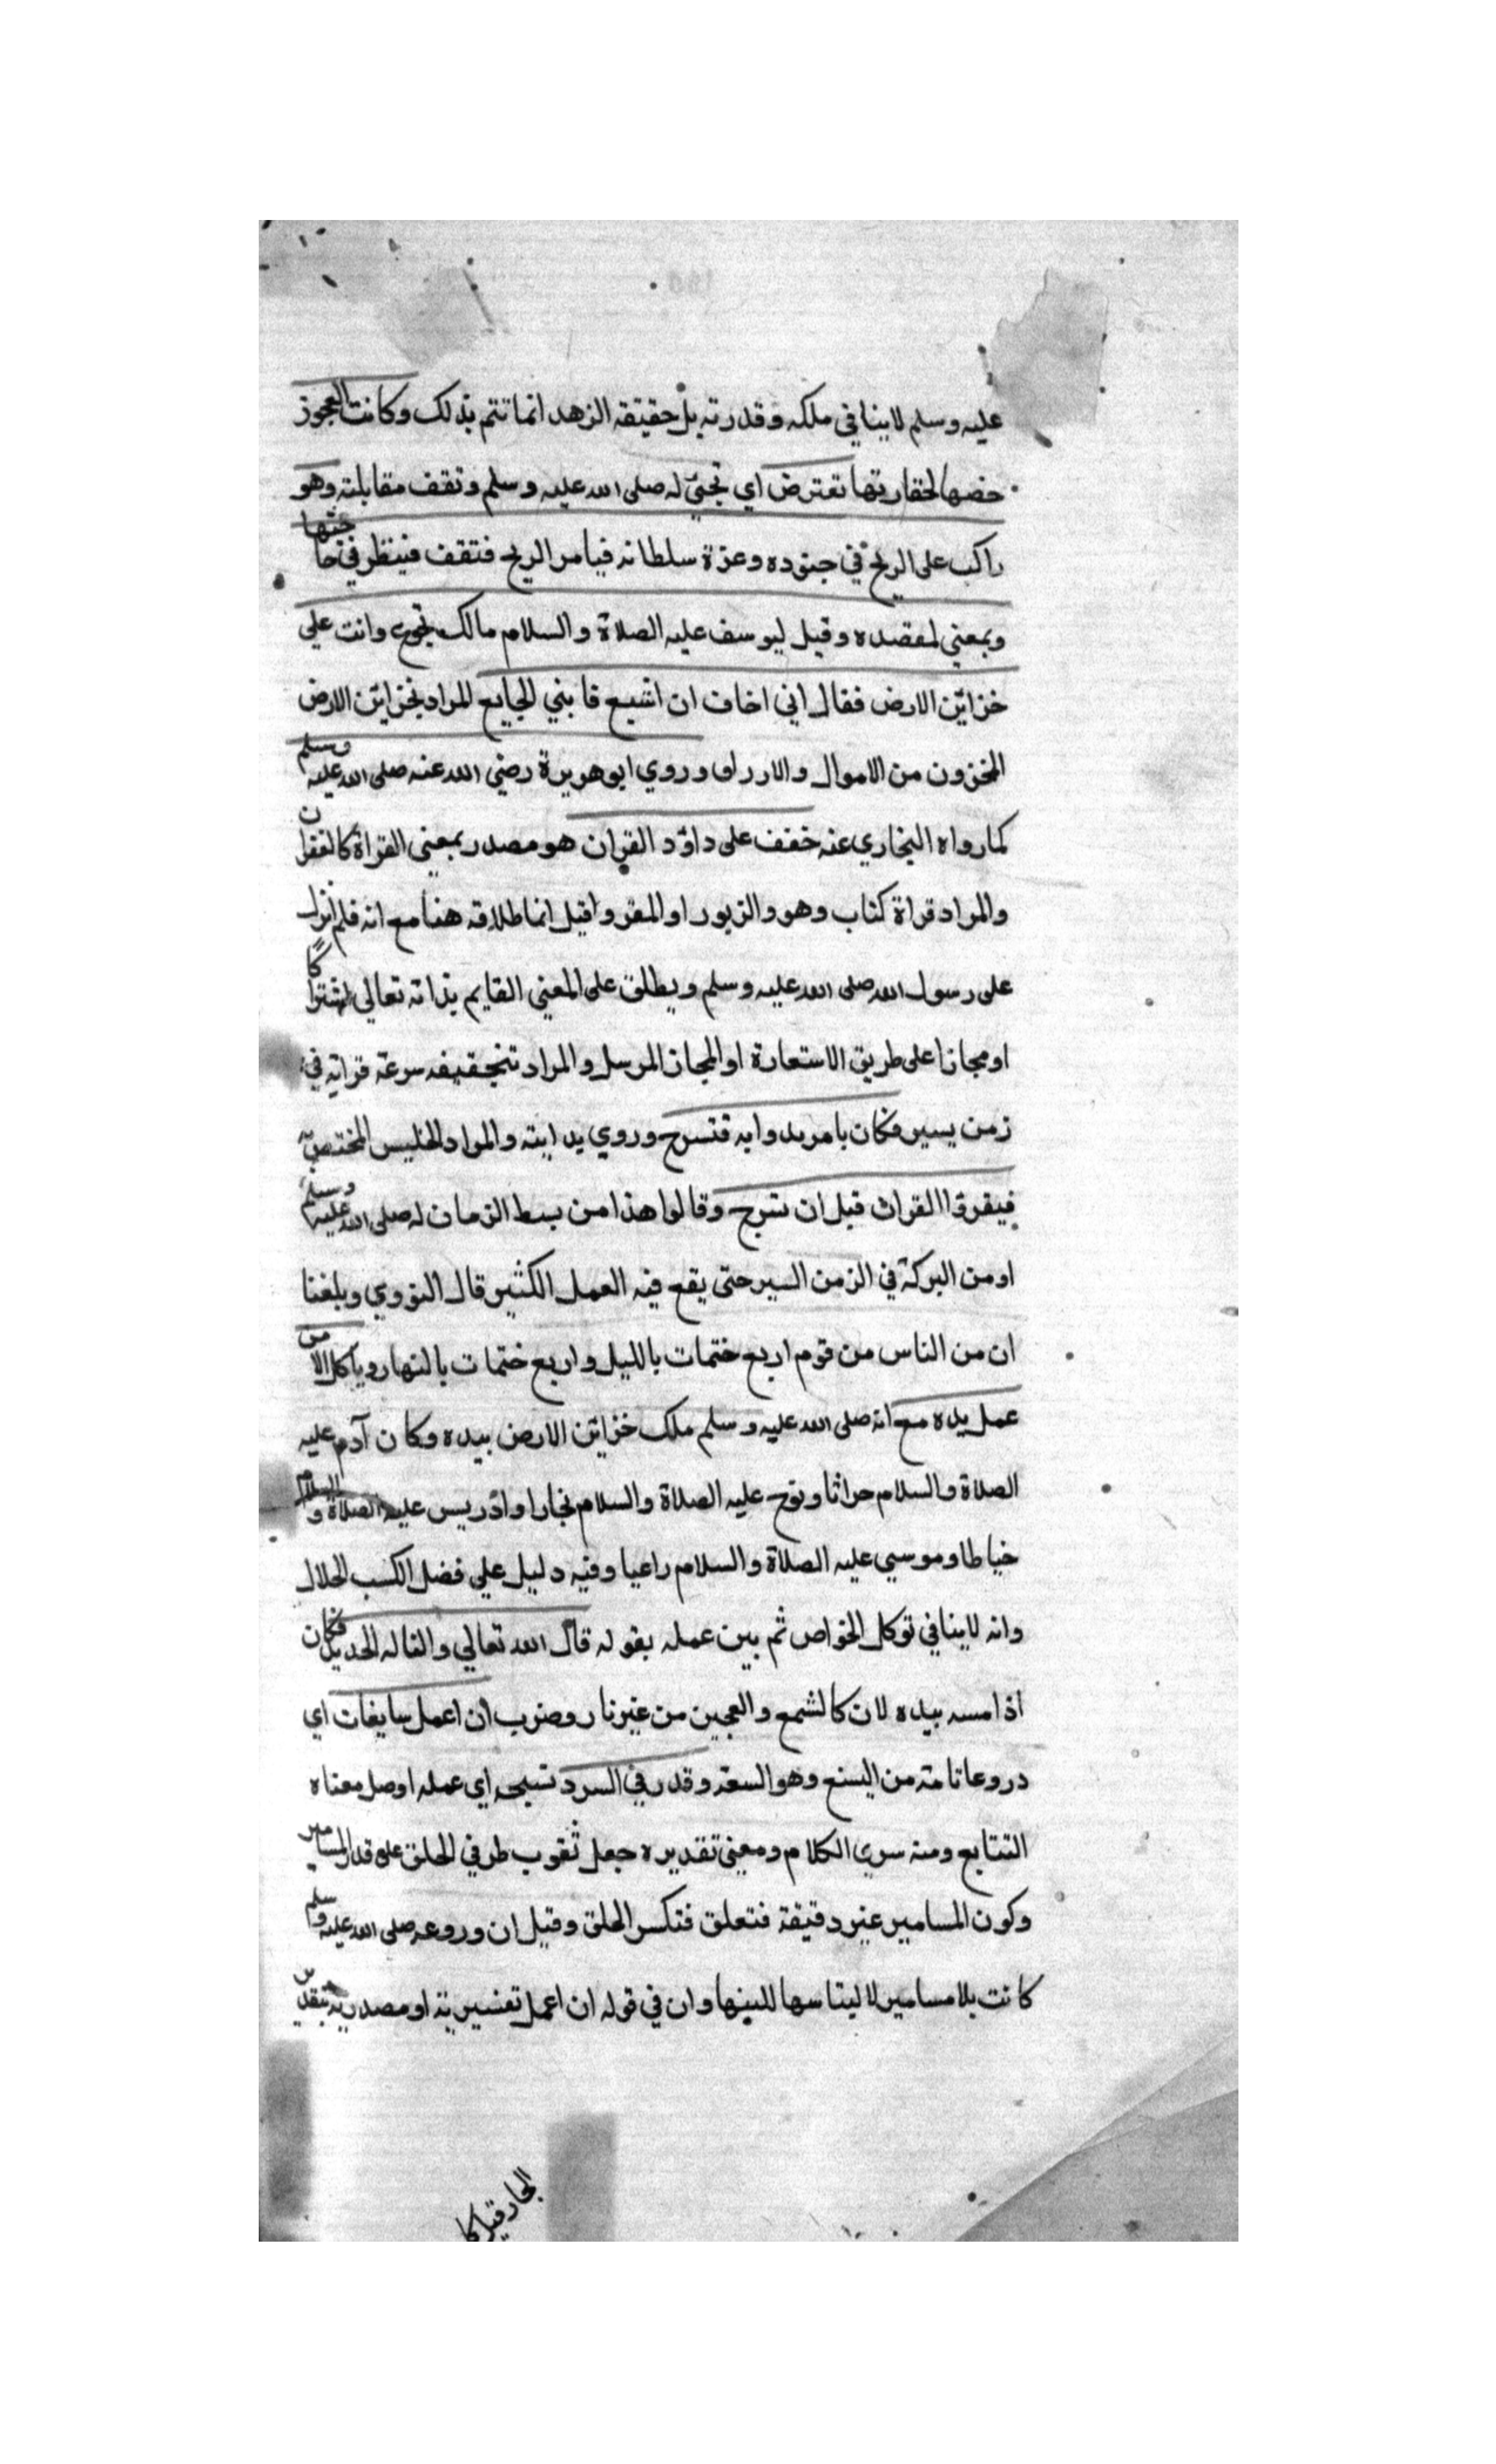 عليه وسلم لاينافي ملكه وقدرته بل حقيقة الزهد انما تتم بذلك وكانت العجوز
خصها لحقارتها تعترض اي تجئ له صلى الله عليه وسلم وتقف مقابلته وهو
راكب على الريح في جنوده وعزة سلطانه فيامر الريح فتقف فينظر في حاجتها
وبمعني لمقصده وقيل ليوسف عليه الصلاة والسلام مالك تجوع وانت علي
خزائن الارض فقال اني اخاف ان اشبع فا بني الجايع المراد بخزائن الارض
المخزون من الاموال والارراق وروي ابوهريرة رضي الله عنه صلى الله عليه وسلم
كما رواه البخاري عنه خفف على داؤد القران هو مصدر بمعنى القراة كالغفران
والمراد قراة كتاب وهو والزبور او المقروا قيل انما طلاقه هنا مع انه فلم انزل
على رسول الله صلى الله عليه وسلم ويطلق على المعني القايم بذاته تعالي اشتراكًا
اومجازا على طريق الاستعارة او المجاز المرسل والمراد تتخفيفه سرعة قراته في
زمن يسير فكان يامر بدوابه فتسرج وروي بدابته والمراد الجنس المختص به
فيقرؤا القران قبل ان تسرج وقالوا هذا من بسط الزمان له صلى الله عليه وسلم
اومن البركة في الزمن اليسير حتى يقع فيه العمل الكثير قال النووي وبلغنا
ان من الناس من قوم اربع ختمات بالليل واربع ختمات بالنهار وياكل الا من
عمل يده مع انه صلى الله عليه وسلم ملك خزائن الارض بيده وكان آدم عليه
الصلاة والسلام حراثا ونوح عليه الصلاة والسلام نجارا وادريس عليه الصلاة والسلام
خياطا وموسي عليه الصلاة والسلام راعيا وفيه دليل علي فضل الكسب الحلال
وانه لاينافي توكل الخواص ثم بين عمله بقوله قال الله تعالي والنا له الحديد فكان
اذا مسه بيده لان كالشمع والعجين من غير نار وضرب ان اعمل سابغات اي
دروعا تامة من السنع وهو السعة وقدر في السرد نسجه اي عمله اوصل معناه
التتابع ومنه سرد الكلام ومعني تقديره جعل ثقوب طرفي الحلق على قدر المسامير
وكون المسامير غير دقيقة فتعلق فتكسر الحلق وقيل ان وروعه صلى الله عليه وسلم
كانت بلا مسامير لا ليتاسها للينها وان في قوله ان اعمل تفسيرية او مصدرية بتقدير
الجار قيل كا